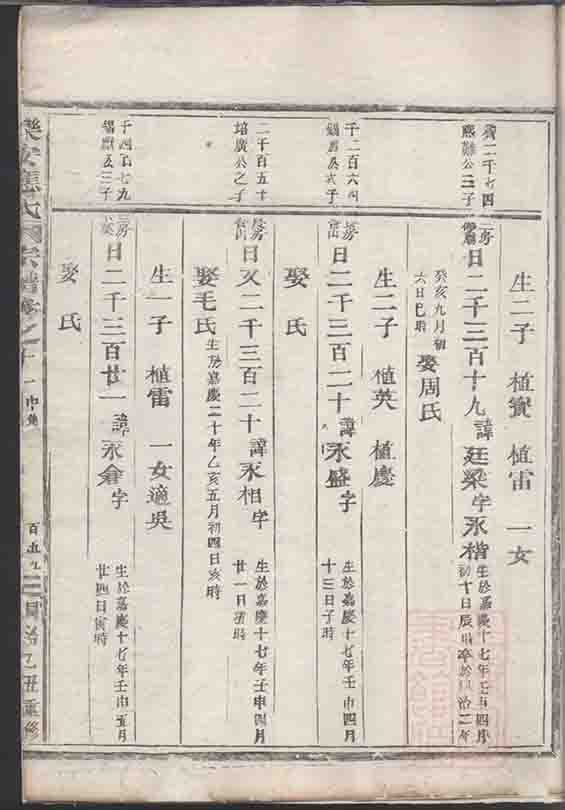 生二子 植寶 植雷 一女
癸二千七四
熙難公三子
日二千三百十九諱廷梁字永楷
生於嘉慶十七年壬申四月
初十日辰時卒於同治二年
癸亥九月初
六日巳時
娶周氏
生二子 植英 植慶
千二百六四
房
日二千三百二十諱永盛字
生於嘉慶十七年壬申四月
十三日子時
娶 氏
二千百五十
培廣公之子
房
日又二千三百二十諱永相字
生於嘉慶十七年壬申四月
廿一日寅時
娶毛氏
生於嘉慶二十年乙亥五月初四日亥時
生一子 植雷 一女適吳
千四百七九
公三子
房
日二千三百廿一諱永倉字
生於嘉慶十七年壬申五月
廿四日寅時
娶 氏
樂安 氏宗譜卷之
同治乙丑重修